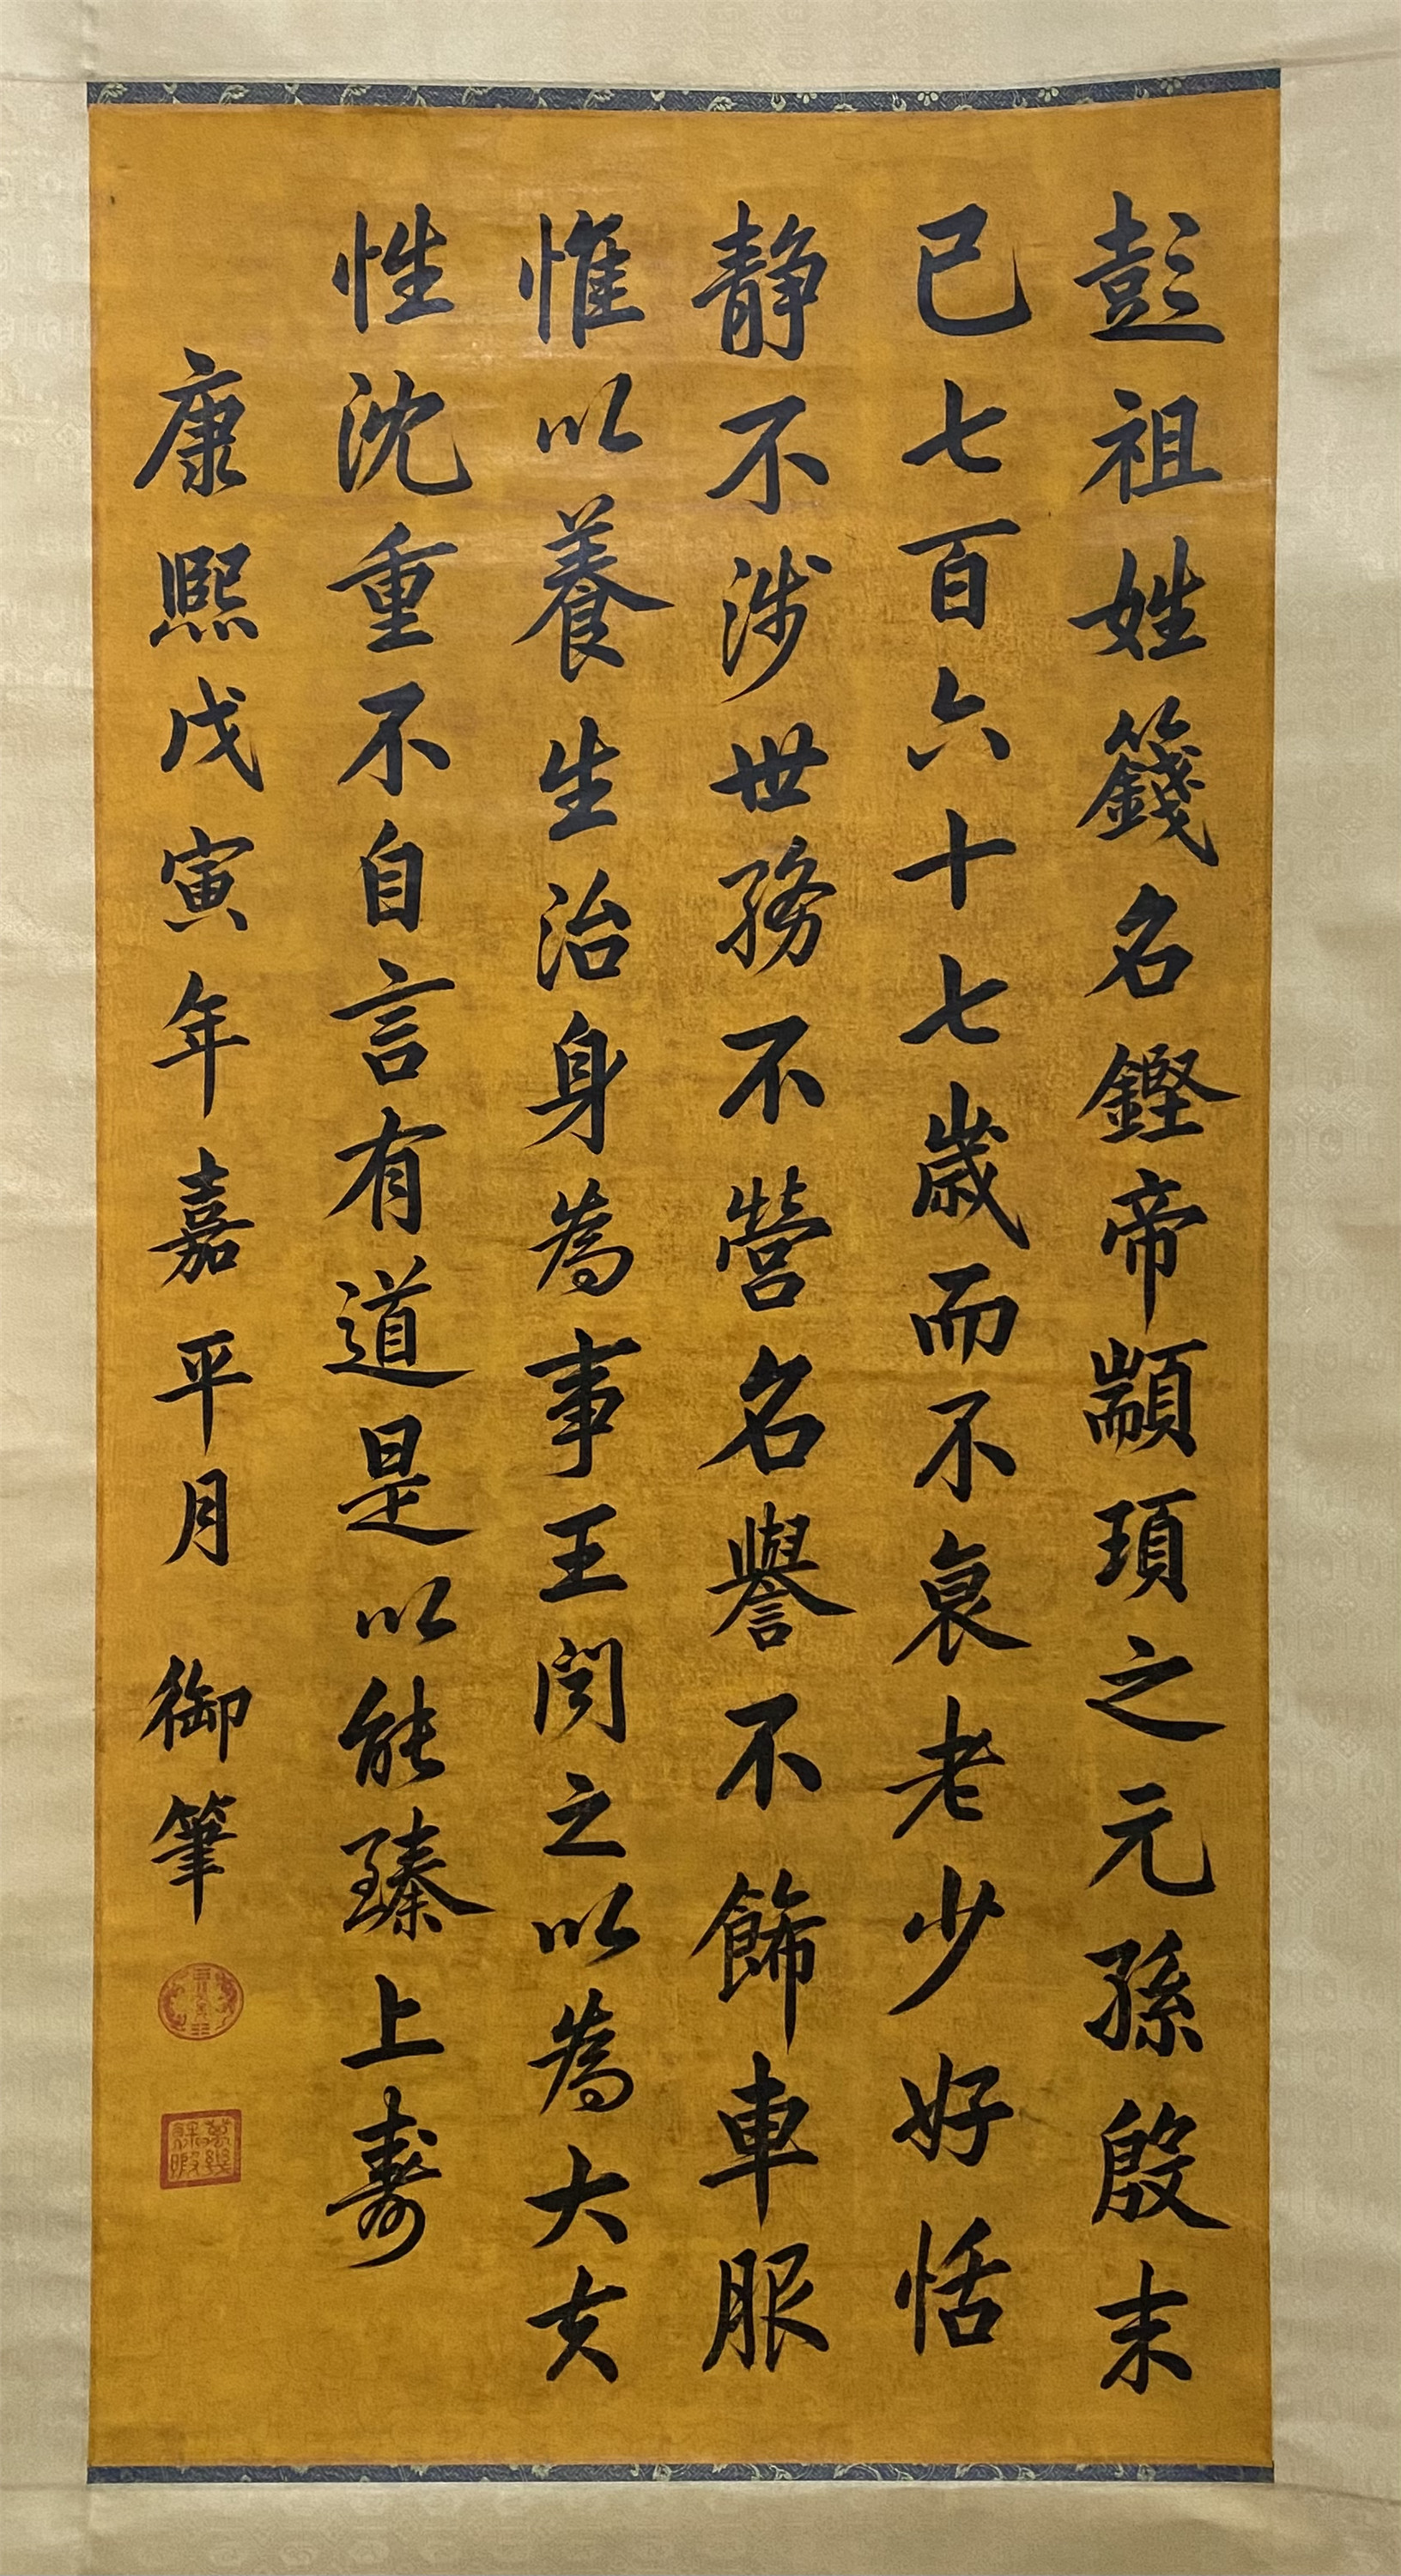 彭祖姓籛名鏗帝顓頊之元孫殷末
已七百六十七歲而不衰老少好恬
靜不涉世務不營名譽不飾車服
惟以養生治身為事王聞之以為大夫
性沈重不自言有道是以能臻上壽
康熙戊寅年嘉平月 御筆
萬幾餘暇